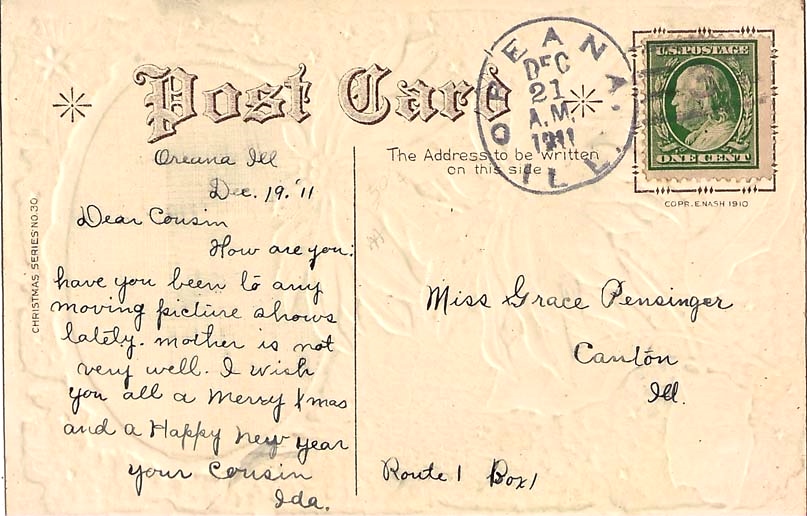 Post Card
OREANA, ILL.
DEC
21
A.M.
1911
U.S. POSTAGE
ONE CENT
COPR. E. NASH 1910
The Address to be written
on this side
CHRISTMAS SERIES NO. 30
Oreana Ill
Dec. 19. '11
Dear Cousin
How are you:
have you been to any
moving picture shows
lately. mother is not
very well. I wish
you all a Merry Xmas
and a Happy new year
your Cousin
Ida.
Miss Grace Pensinger
Canton
Ill.
Route 1 Box 1